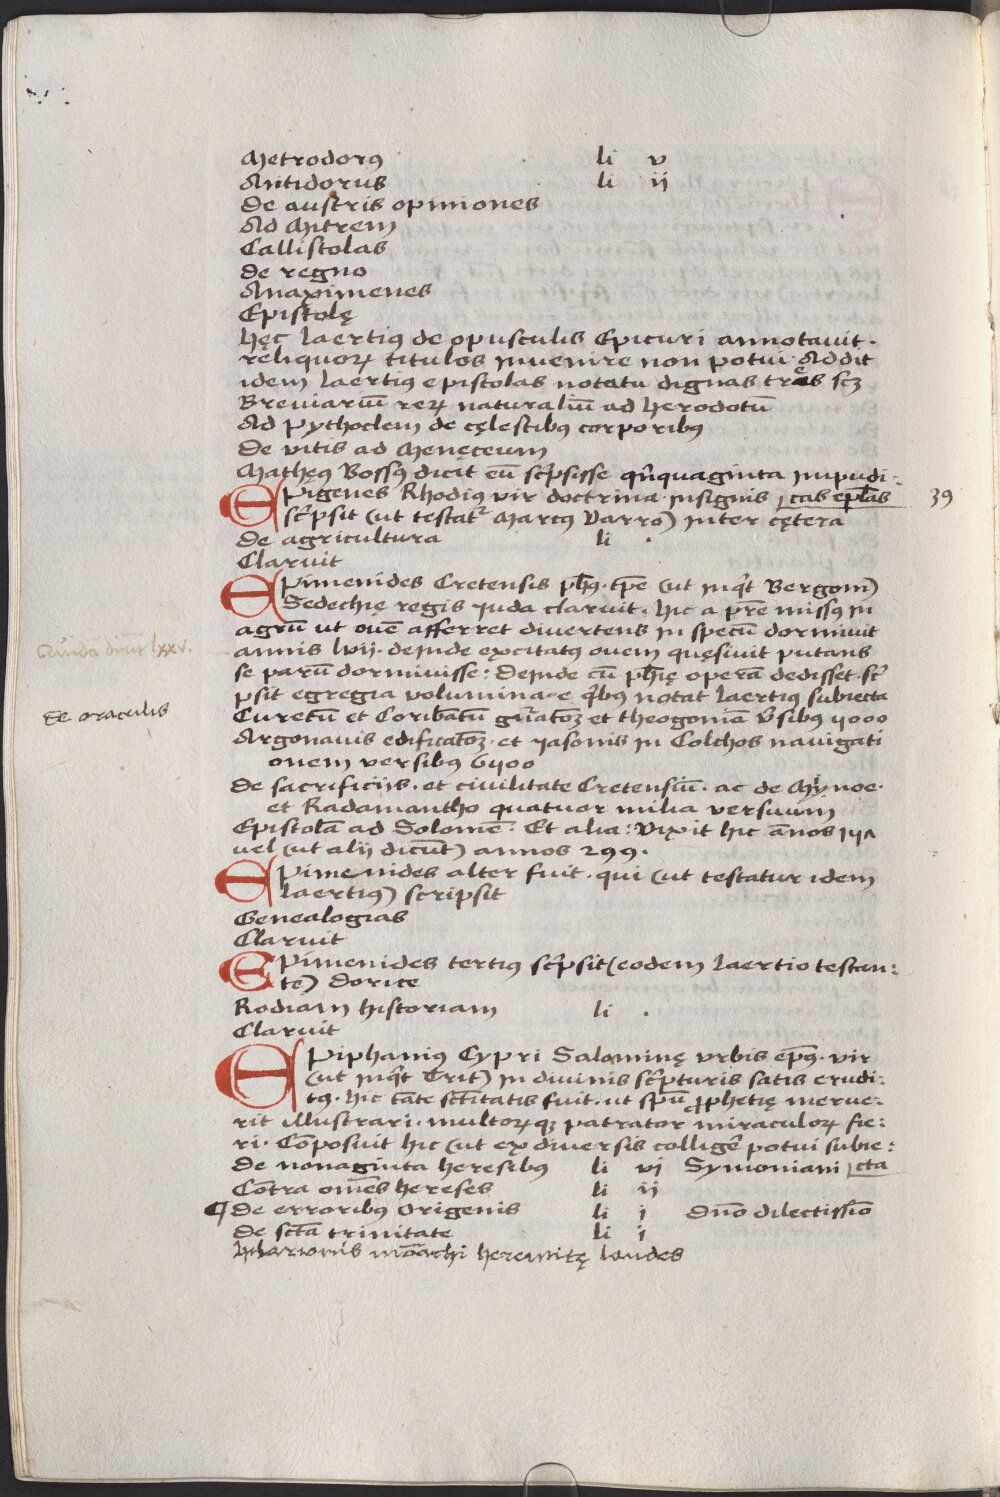 Metrodorꝰ li v
Antidorus li ij
De austris opiniones
Ad Mitrem
Callistolas
De regno
Anaximenes
Epistolę
Hęc laertiꝰ de opusculis Epicuri annotavit.
reliquoꝝ titulos invenire non potui. Addit
idem laertiꝰ epistolas notatu dignas tres scꝫ
Breviariū reꝝ naturaliū ad herodotū
Ad Pythoclem de cęlestibꝰ corporibꝰ
De vitis ad Menęceum
Mathęꝰ Bossꝰ dicit eū sc̓psisse qⁱnquaginta impudi-
cas ep̄las
EPigenes Rhodiꝰ vir doctrina insignis 39
sc̓psit (ut testat̄ Marcꝰ Varro) inter cętera
De agricultura li .
Claruit
EPimenides Cretensis ph̄ꝰ. tp̄e (ut inqⁱt Bergom̄)
Sedechię regis iuda claruit. hic a pr̄e missꝰ in
agrū ut ovē afferret divertens in specū dormivit
annis lvij. deinde excitatꝰ ovem quęsivit putans
Quida dicūt lxxv.
se parū dormivisse: Deinde cū ph̄ię operā dedisset. sc̓
psit egregia volumina e qⁱbꝰ notat laertiꝰ subiecta
De oraculis
Curetū et Coribātū gn̄atōꝫ et theogoniā v̄sibꝰ 4000
Argonavis edificatōꝫ. et iasonis in Colchos navigati
onem versibus 6400
De sacrificijs. et civilitate Cretensiū. ac de Mynoe.
et Radamantho quatuor milia versuum
Epistolā ad Solomē: Et alia: Vixit hic ānos 147
vel (ut alij dicūt) annos 299.
EPimenides alter fuit. qui (ut testatur idem
laertiꝰ) scripsit
Genealogias
Claruit
EPimenides tertiꝰ sc̓psit (eodem laertio testan:
te) dorice
Rodiam historiam li .
Claruit
EPiphaniꝰ Cypri Salaminę urbis ep̄ꝰ. vir
(ut inqⁱt Trit) in divinis sc̓pturis satis erudi:
tꝰ. hic tāte sc̄titatis fuit. ut sp̄ū ꝓphetię merue:
rit illustrari. multoꝝ qꝫ patrator miraculoꝝ fie:
ri. Cōposuit hic (ut ex diversis colligē potui subie:
cta
De nonaginta heresibꝰ li vj Symoniani
Cōtra om̄es hereses li ij
¶ De erroribꝰ Origenis li i Dn̄o dilectissīo
De sc̄ta trinitate li i
hilarionis monachi heremitę laudes